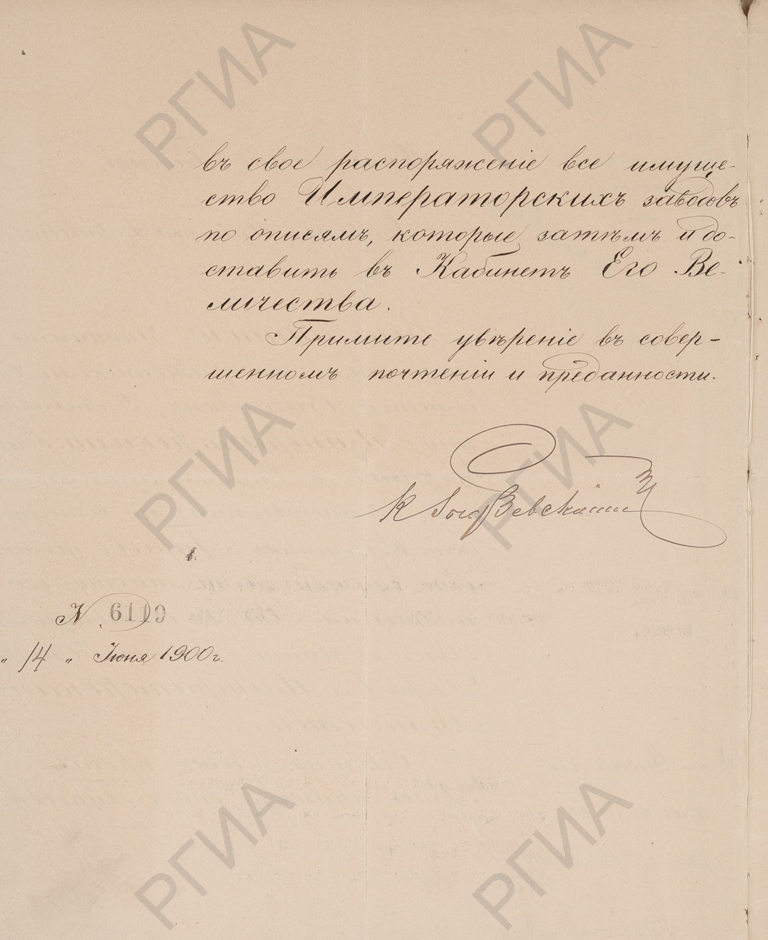 РГИА РГИА
въ свое распоряженіе все имуще-
ство Императорскихъ заводовъ
по описямъ, которые затѣмъ и до-
ставить въ Кабинетъ Его Ве-
личества.
Примите увѣреніе въ совер-
шенномъ почтеніи и преданности.
РГИА РГИА
N. 6119
„ 14 „ Іюня 1900 г.
РГИА РГИА